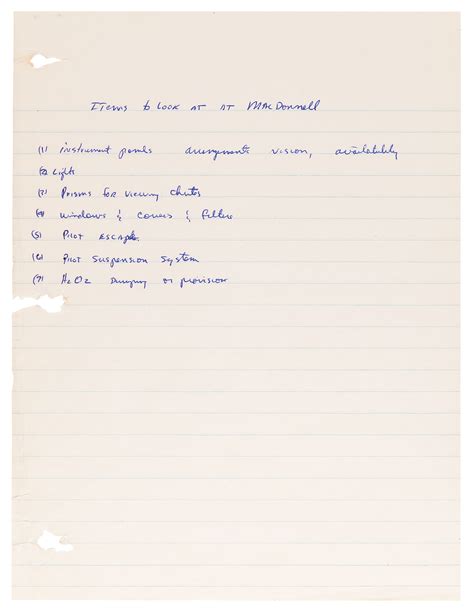 Items to Look AT AT MACDonnell
(1) instrument panels arrangements vision, availability
(2) Lights
(3) Prisms for viewing chutes
(4) Windows & Covers & filters
(5) Pilot Escape
(6) Pilot Suspension System
(7) H2O2 Dumping or provision